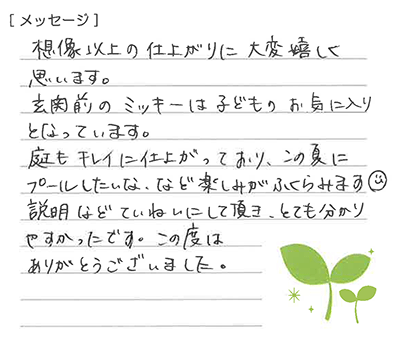 [メッセージ]
想像以上の仕上がりに大変嬉しく
思います。
玄関前のミッキーは子どものお気に入り
となっています。
庭もキレイに仕上がっており、この夏に
プールしたいな、など楽しみがふくらみます☺
説明などていねいにして頂き、とても分かり
やすかったです。この度は
ありがとうございました。